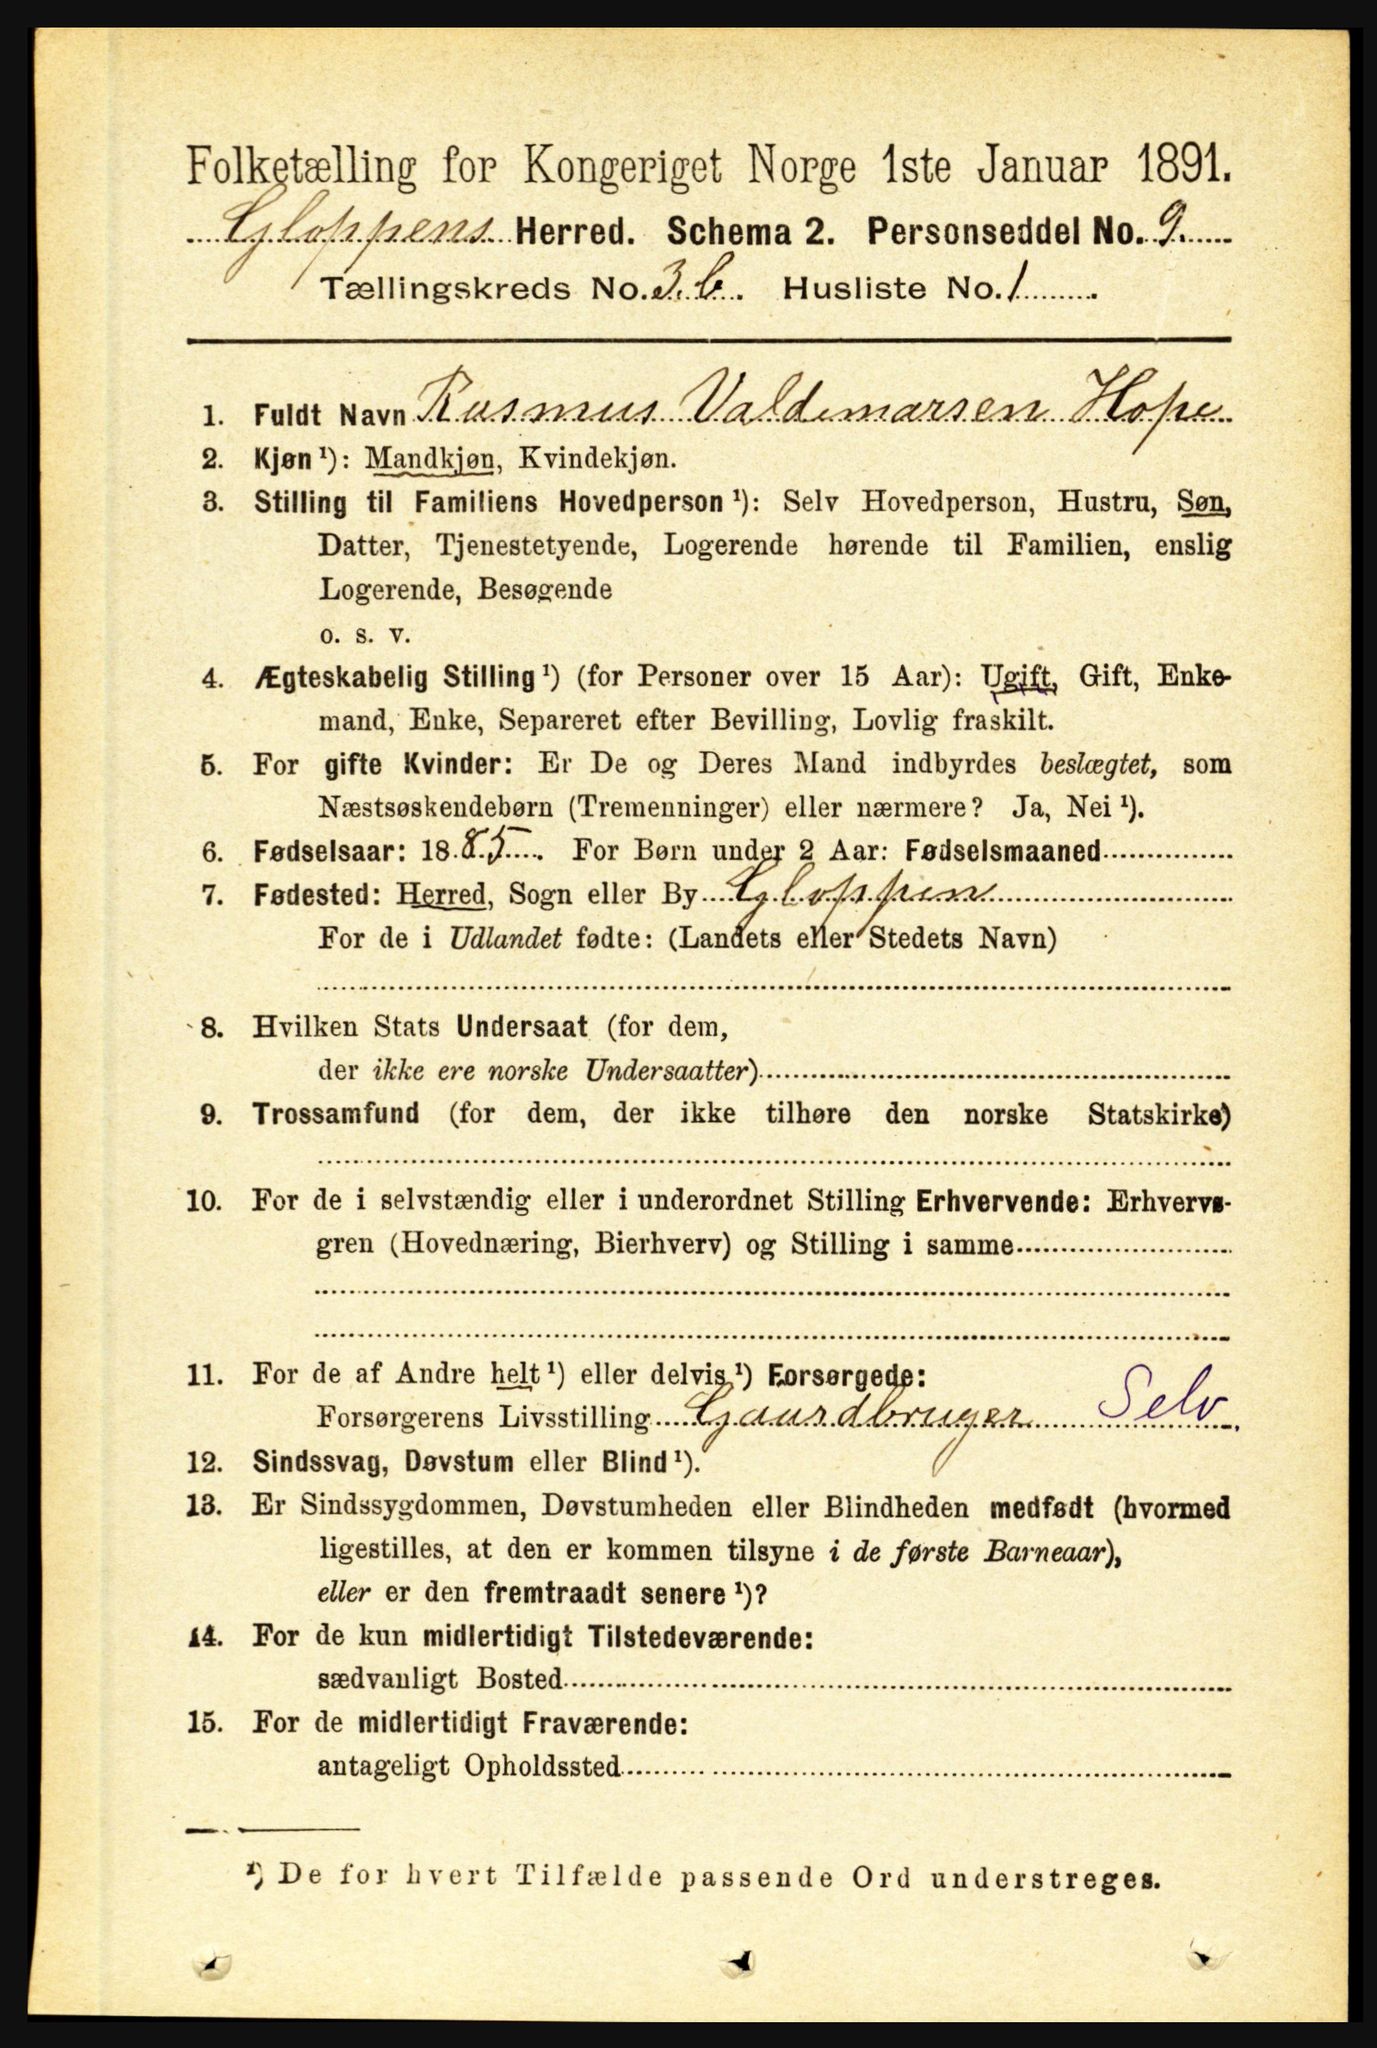 Folketælling for Kongeriget Norge 1ste Januar 1891.
Gloppens Herred. Schema 2. Personseddel No. 9.
Tællingskreds No. 3.b. Husliste No. 1
1. Fuldt Navn Rasmus Valdemarsen Hope
2. Kjøn ¹): Mandkjøn, Kvindekjøn.
3. Stilling til Familiens Hovedperson ¹): Selv Hovedperson, Hustru, Søn,
Datter, Tjenestetyende, Logerende hørende til Familien, enslig
Logerende, Besøgende
o. s. v.
4. Ægteskabelig Stilling ¹) (for Personer over 15 Aar): Ugift, Gift, Enke-
mand, Enke, Separeret efter Bevilling, Lovlig fraskilt.
5. For gifte Kvinder: Er De og Deres Mand indbyrdes beslægtet, som
Næstsøskendebørn (Tremenninger) eller nærmere? Ja, Nei ¹).
6. Fødselsaar: 1885. For Børn under 2 Aar: Fødselsmaaned
7. Fødested: Herred, Sogn eller By Gloppen
For de i Udlandet fødte: (Landets eller Stedets Navn)
8. Hvilken Stats Undersaat (for dem,
der ikke ere norske Undersaatter)
9. Trossamfund (for dem, der ikke tilhøre den norske Statskirke)
10. For de i selvstændig eller i underordnet Stilling Erhvervende: Erhvervs-
gren (Hovednæring, Bierhverv) og Stilling i samme
11. For de af Andre helt ¹) eller delvis ¹) Forsørgede:
Forsørgerens Livsstilling Gaardbruger Selv.
12. Sindssvag, Døvstum eller Blind ¹).
13. Er Sindssygdommen, Døvstumheden eller Blindheden medfødt (hvormed
ligestilles, at den er kommen tilsyne i de første Barneaar),
eller er den fremtraadt senere ¹)?
14. For de kun midlertidigt Tilstedeværende:
sædvanligt Bosted
15. For de midlertidigt Fraværende:
antageligt Opholdssted
¹) De for hvert Tilfælde passende Ord understreges.